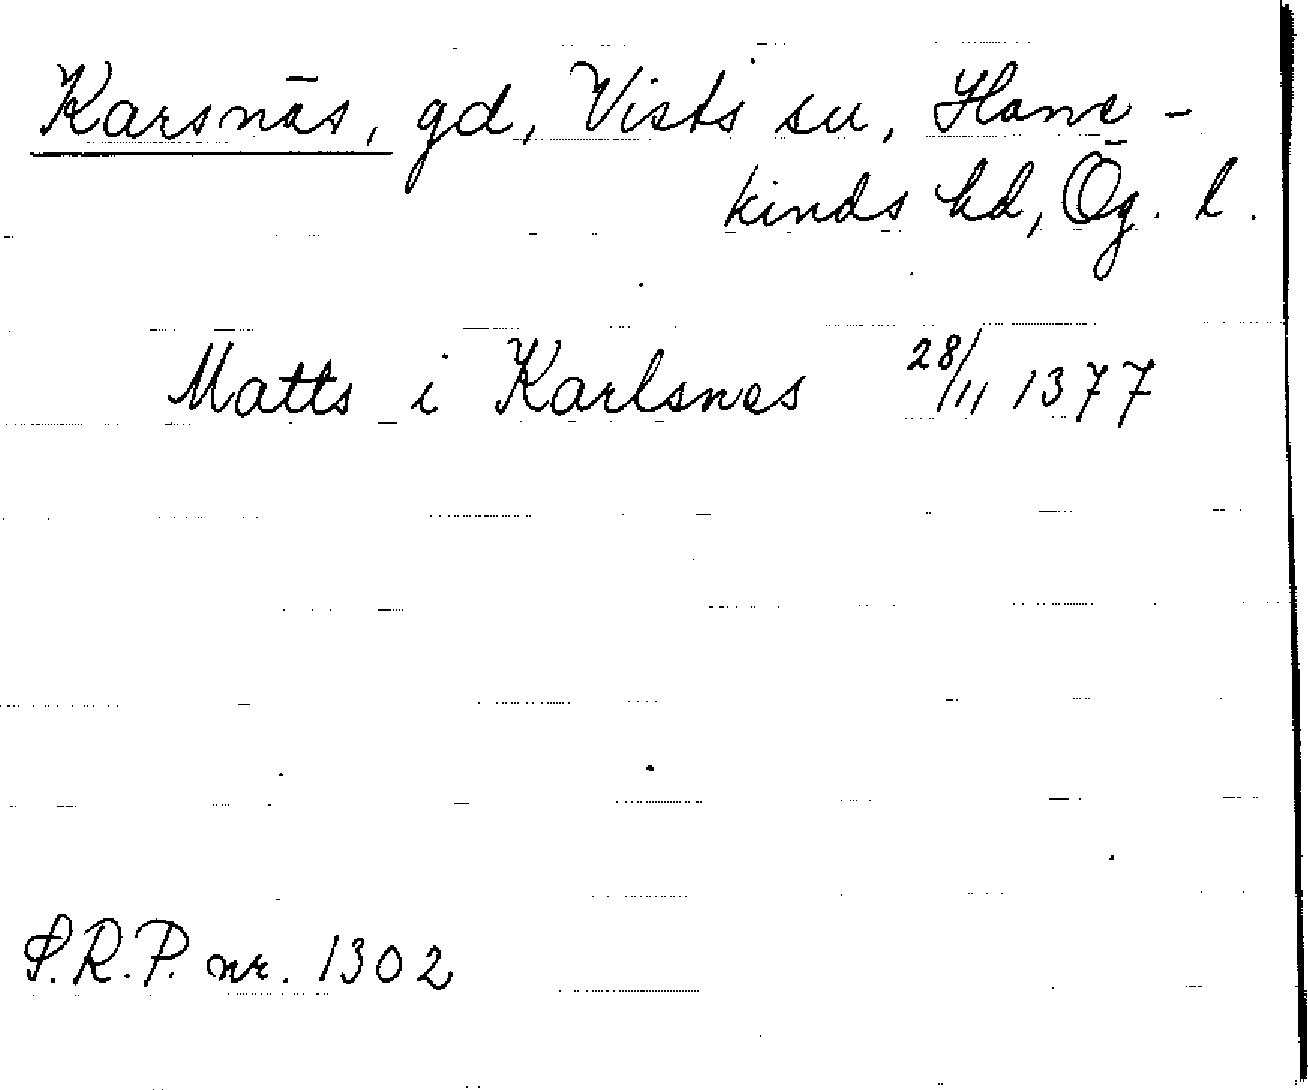 Karsnäs, gd, Vists sn, Hane-
kinds hd, Ög. l.
Matts i Karlsnes 28/11 1377
S.R.P. nr. 1302